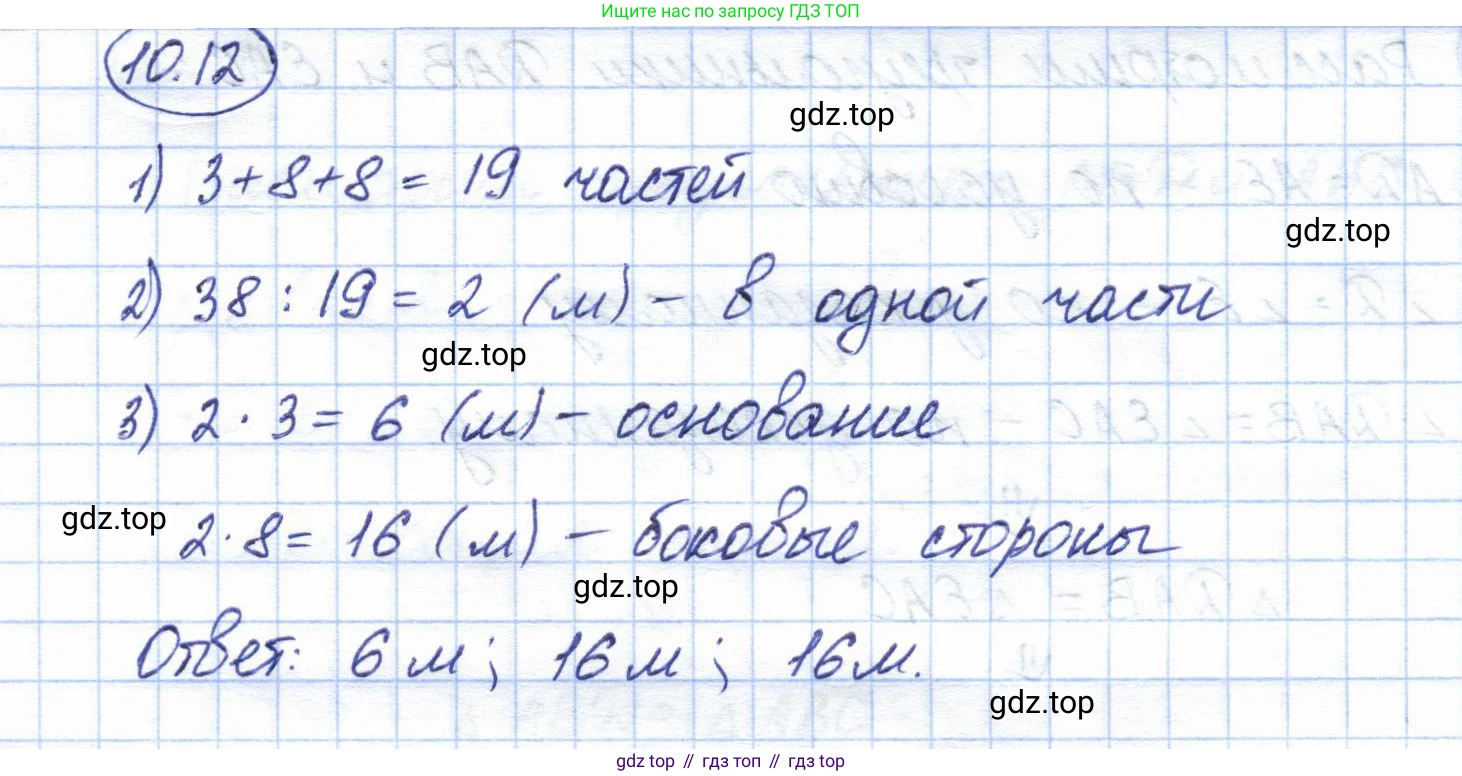 Ищите нас по запросу ГДЗ ТОП
10.12
gdz.top
1) 3+8+8 = 19 частей
gdz.top
2) 38 : 19 = 2 (м) - в одной части
gdz.top
3) 2 · 3 = 6 (м) - основание
gdz.top
2 · 8 = 16 (м) - боковые стороны
gdz.top
Ответ: 6 м ; 16 м ; 16 м.
gdz.top
gdz top // гдз топ // гдз top